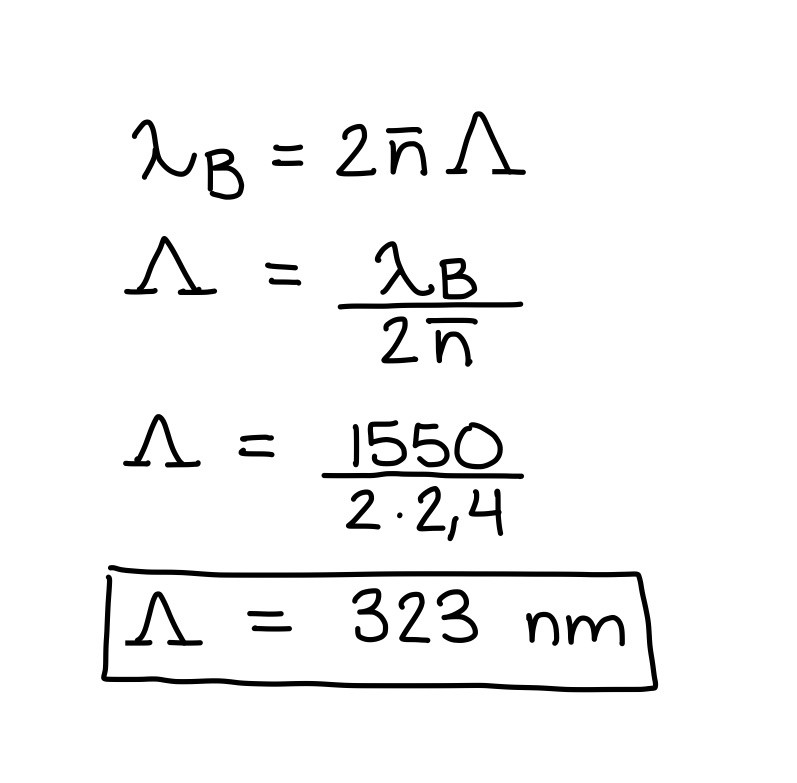 λ_B = 2n̄Λ
Λ = λ_B / 2n̄
Λ = 1550 / 2·2,4
Λ = 323 nm